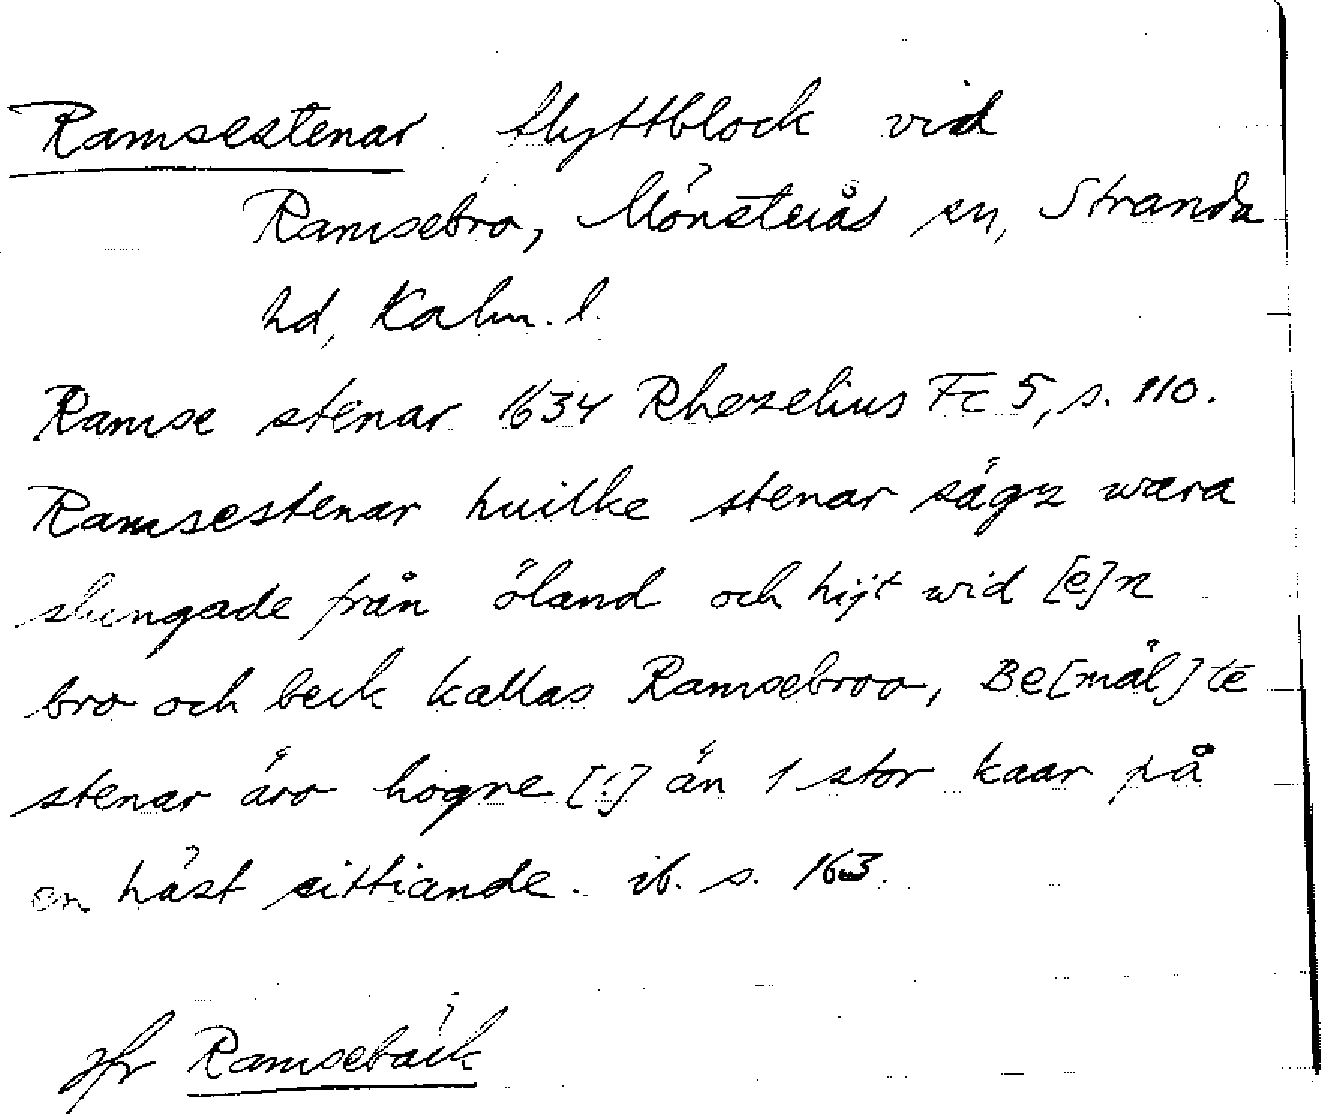 Ramsestenar flyttblock vid
Ramsebro, Mönsterås sn, Stranda
hd, Kalm. l.
Ramse stenar 1634 Rhezelius Fc 5, s. 110.
Ramsestenar huilke stenar sägz wara
slungade från öland och hijt wid [e]n
bro och beck kallas Ramsebroo, Be[mäl]te
stenar äro högre [!] än 1 stor kaar på
en häst sittiande. ib. s. 163.
jfr Ramsebäck